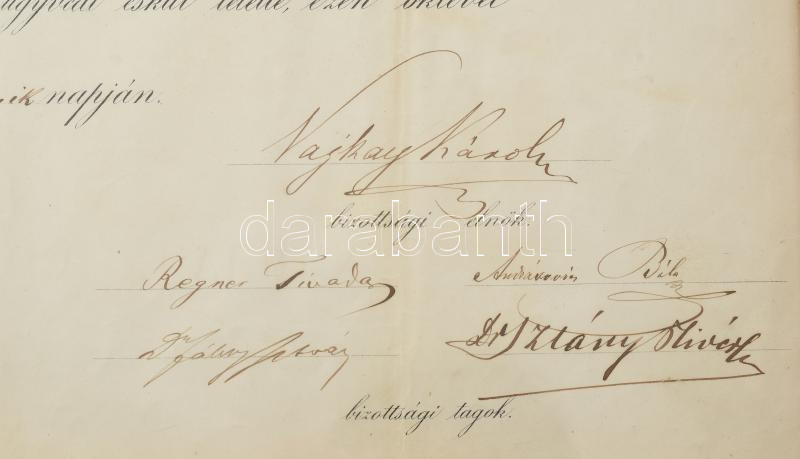 ügyvédi esküt letette, ezen oklevél
ik napján.
Vajkay Károly
bizottsági elnök.
darabanth
Regner Tivadar
Béla
Dr István
Dr Sztány Olivér
bizottsági tagok.